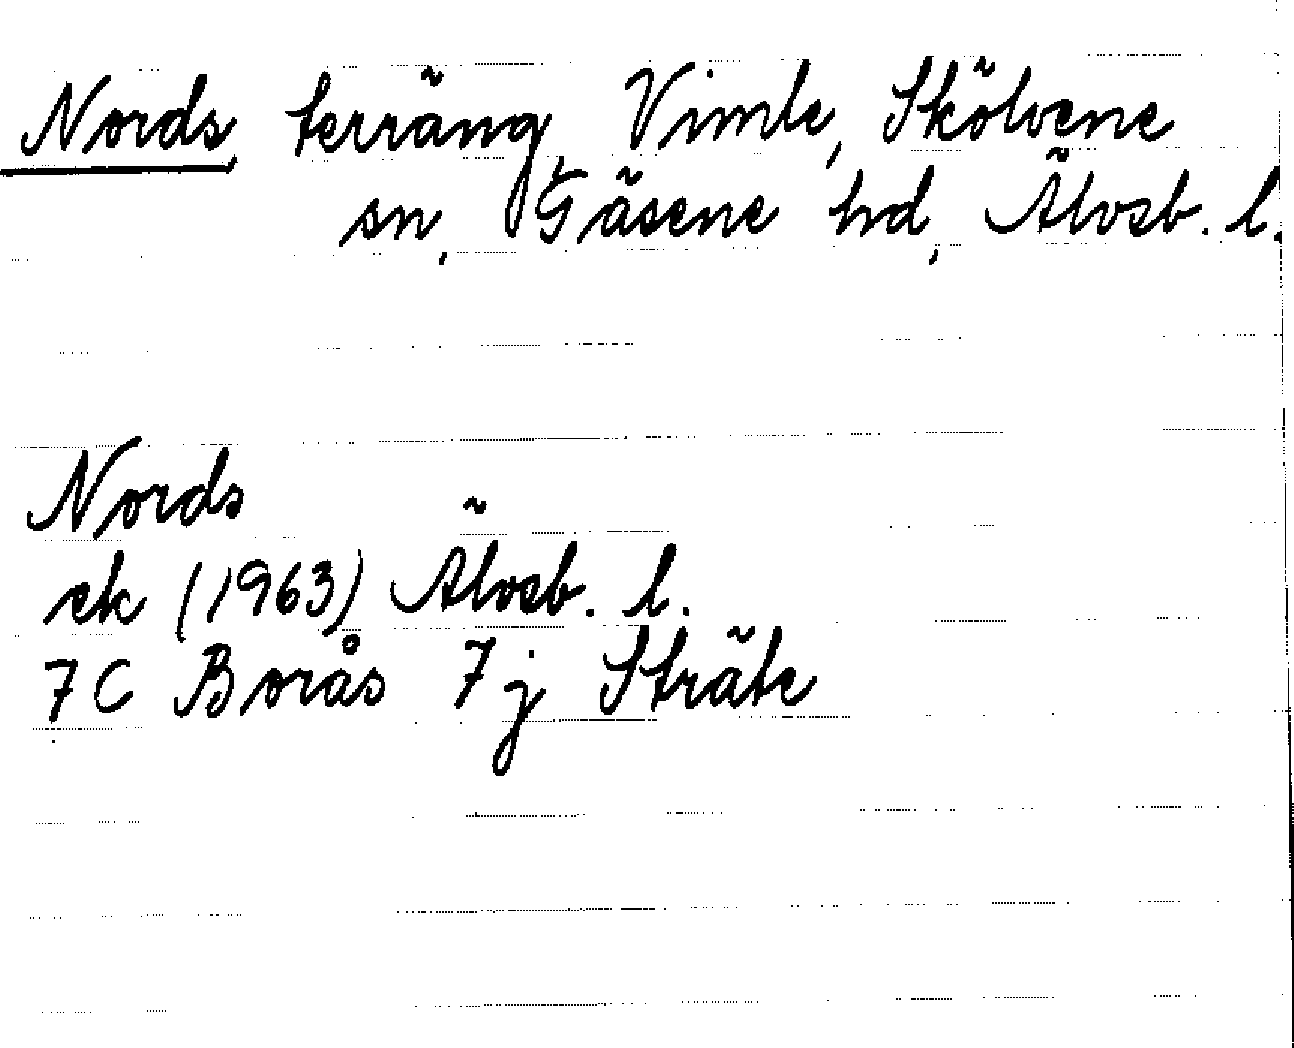 Nords, terräng, Vimle, Skölvene
sn, Gäsene hd, Älvsb. l.
Nords
ek (1963) Älvsb. l.
7C Borås 7j Sträte